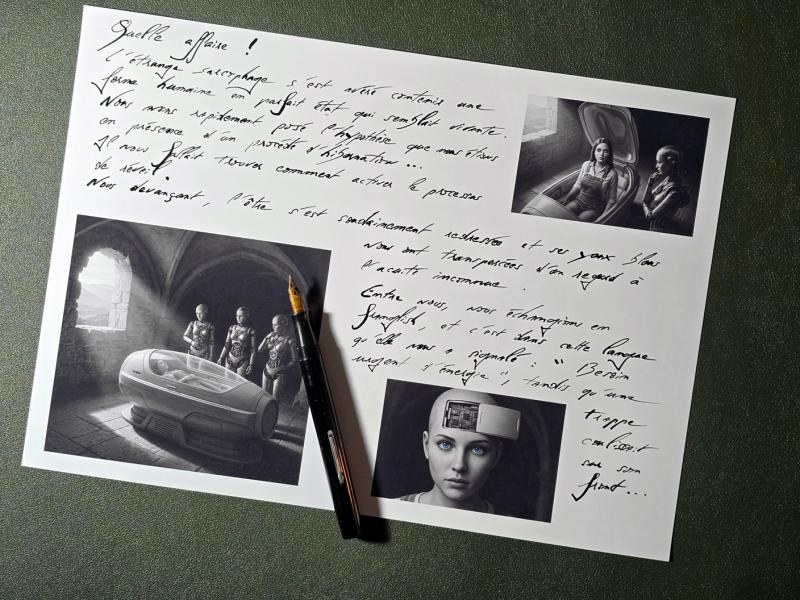 Quelle affaire !
L'étrange sarcophage s'est avéré contenir une
forme humaine en parfait état qui semblait vivante.
Nous avons rapidement posé l'hypothèse que nous étions
en présence d'un procédé d'hibernation...
Il nous fallait trouver comment activer le processus
de réveil.
Nous devançant, l'être s'est soudainement redressé et ses yeux bleus
nous ont transpercées d'un regard à
vivacité inconnue.
Entre nous, nous échangions en
, et c'est dans cette langue
qu'elle nous a signalé : " Besoin
urgent d'énergie ", tandis qu'une
trappe
coulissait
sur son
front...